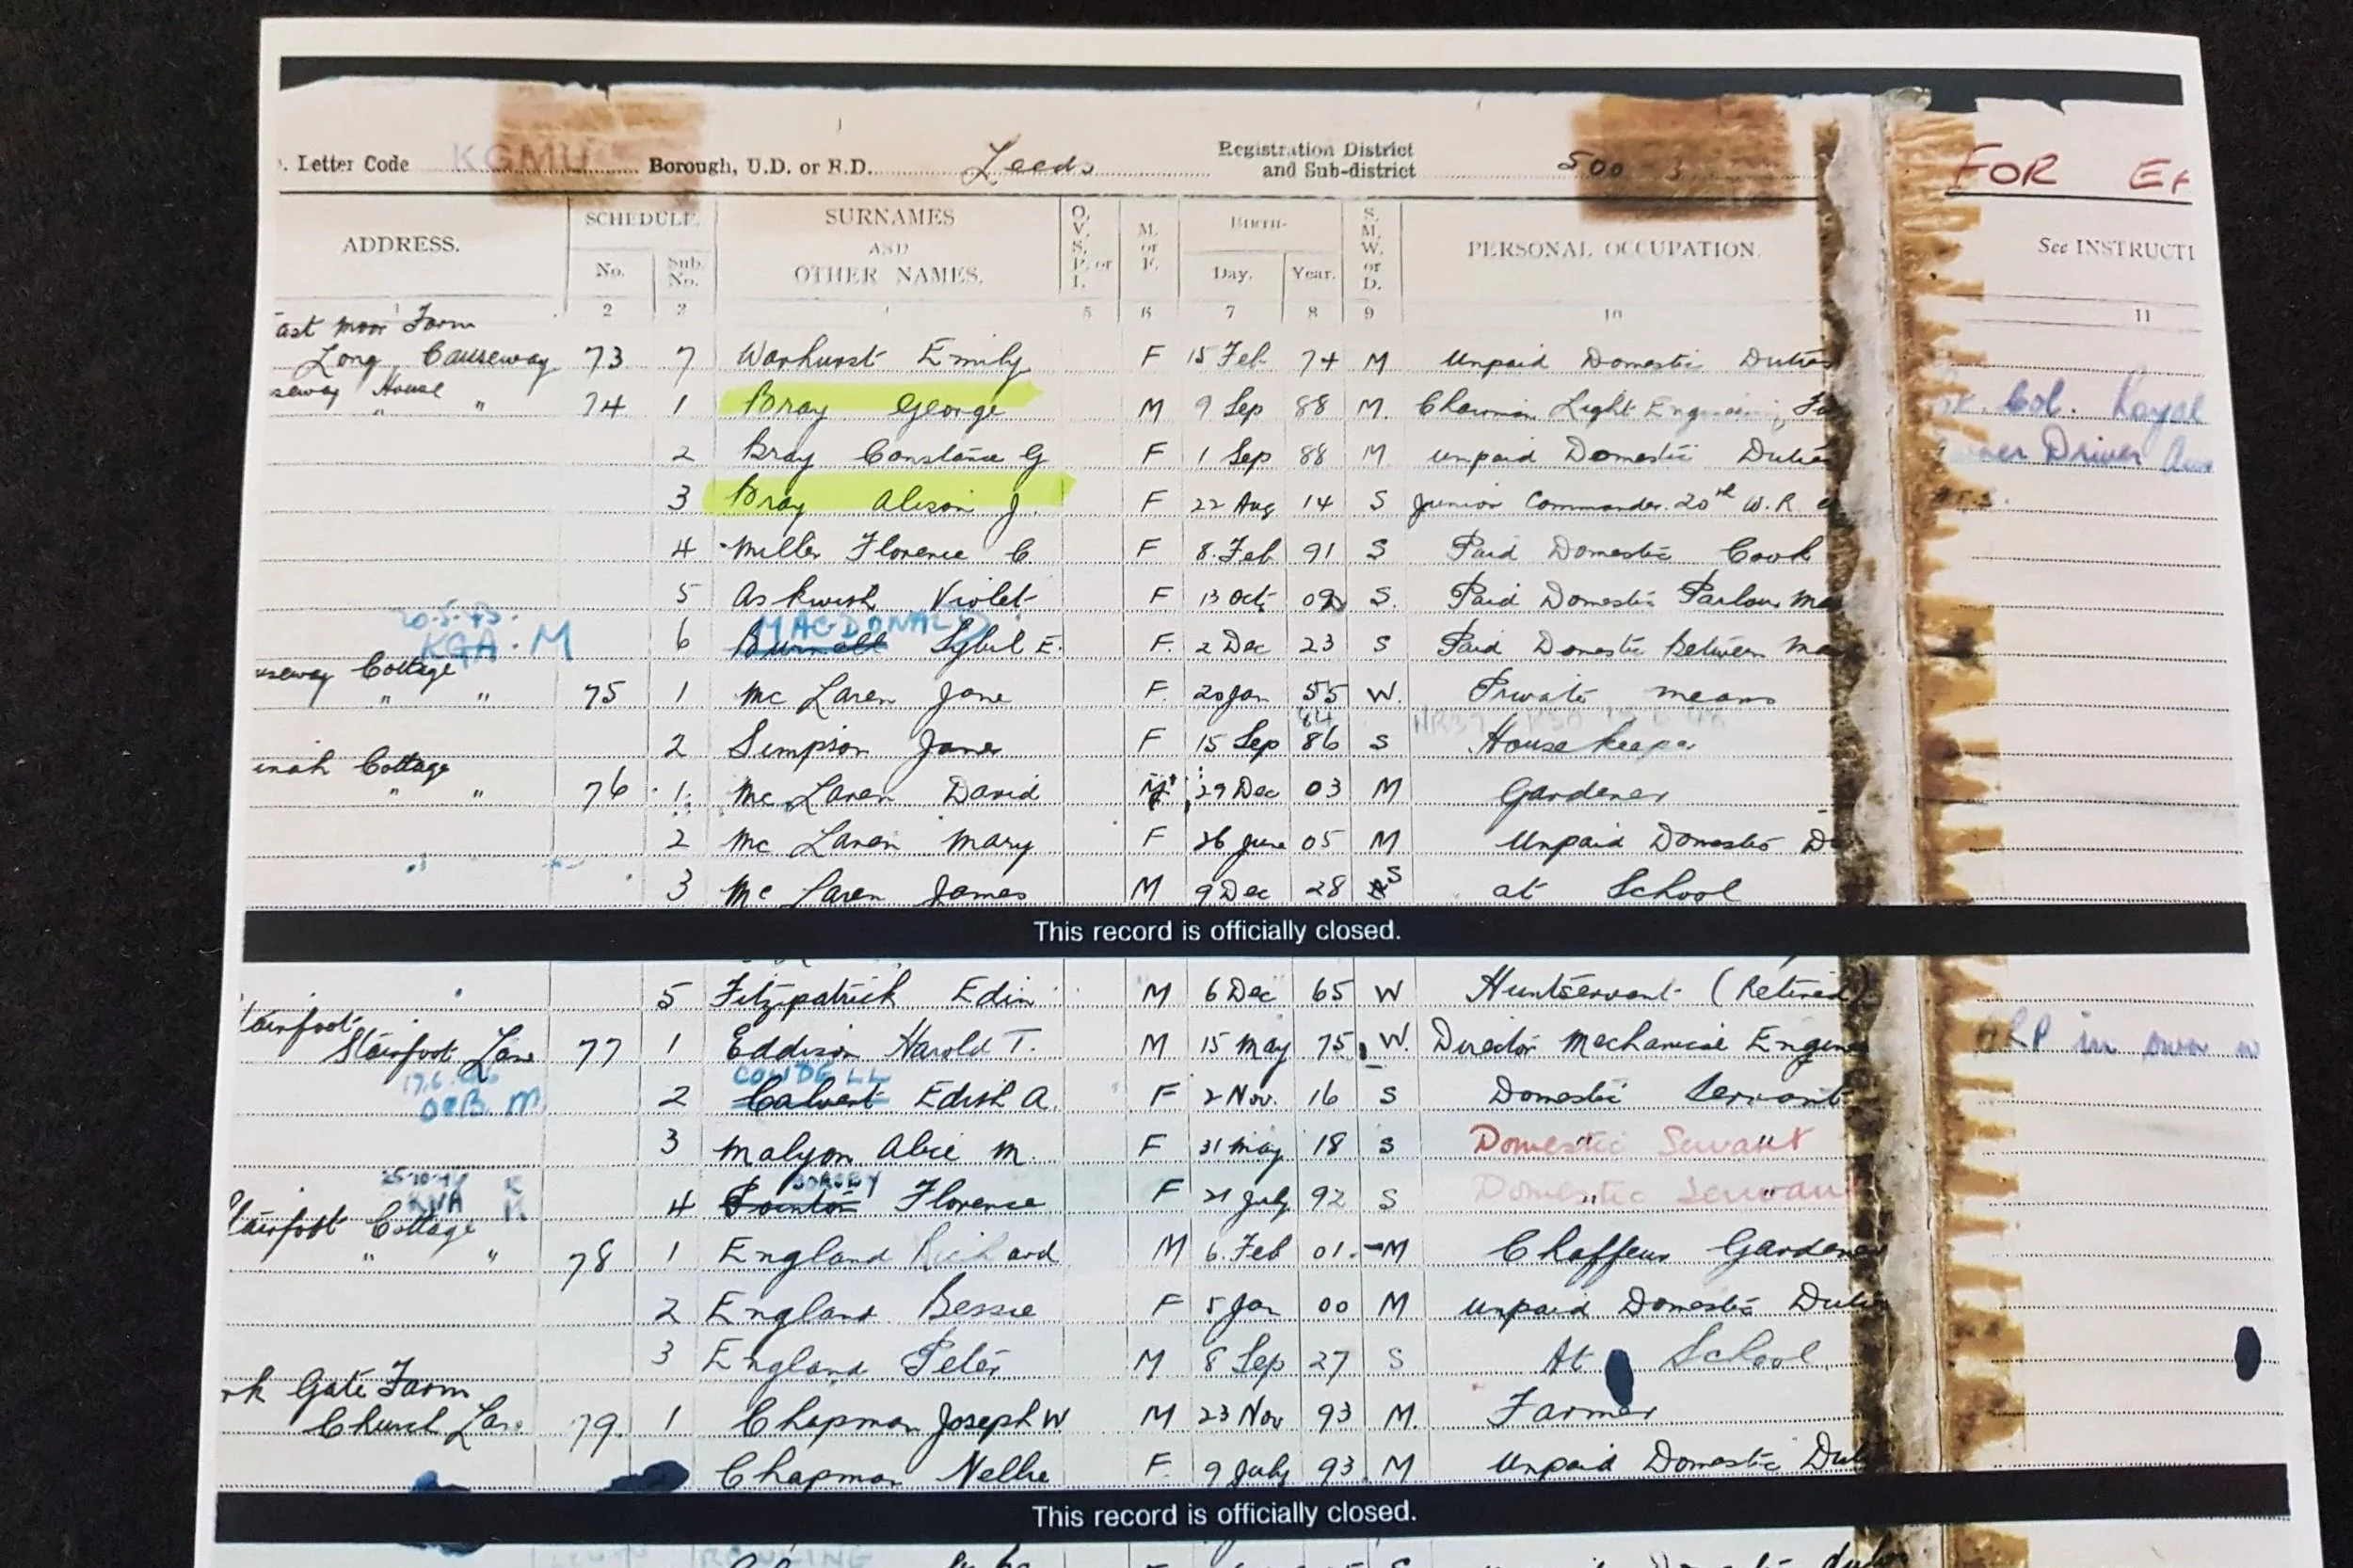 Letter Code KGMU Borough, U.D. or R.D. Leeds Registration District and Sub-district 500 3 FOR
ADDRESS. SCHEDULE. SURNAMES AND OTHER NAMES. O, V, S, P, or I. M. or F. Birth- S. M. W. or D. PERSONAL OCCUPATION. See INSTRUCTI
No. Sub. No. Day. Year.
2 3 5 6 7 8 9 10 11
ast Moor Farm
Long Causeway 73 7 Warhurst Emily F 15 Feb 74 M Unpaid Domestic Duties
seway House
" " 74 1 Bray George M 9 Sep 88 M. Light Col. Royal
2 Bray Constance G F 1 Sep 88 M unpaid Domestic Duties Driver
3 Bray Alison J. F 22 Aug 14 S Junior Commander. 20th W.R.
4 Miller Florence C. F 8. Feb 91 S Paid Domestic Cook
5 Askwith Violet F 13 Oct 09 S. Paid Domestic Parlour Ma
20.5.43. MACDONALD
KGA. M 6 Burnett Sybil E. F. 2 Dec 23 S Paid Domestic Between Ma
seway Cottage
" " 75 1 Mc Laren Jane F. 20 Jan 55 W. Private means
84
2 Simpson Jane F 15 Sep 86 S Housekeeper
Cottage
" " 76 1. Mc Laren David M 29 Dec 03 M Gardener
2 Mc Laren Mary F 26 June 05 M Unpaid Domestic D
3 Mc Laren James M 9 Dec 28 S at School
This record is officially closed.
5 Fitzpatrick Edin M 6 Dec 65 W Huntservant (Retired)
airfoot
Stairfoot Lane 77 1 Eddison Harold T. M 15 May 75 W. Director Mechanical Engine ARP in own
COWDELL
2 Calvert Edith A. F 2 Nov. 16 S Domestic Servant
3 Malyon Alice M. F 31 May 18 S Domestic Servant
4 Florence F 21 July 92 S Domestic Servant
airfoot Cottage
" " 78 1 England Richard M 6. Feb 01. M Chaffeur Gardener
2 England Bessie F 5 Jan 00 M unpaid Domestic Duties
3 England Peter M 8 Sep 27 S At School
rk Gate Farm
Church Lane 79. 1 Chapman Joseph W M 23 Nov 93 M. Farmer
Chapman Nellie F. 9 July 93. M Unpaid Domestic Dut
This record is officially closed.